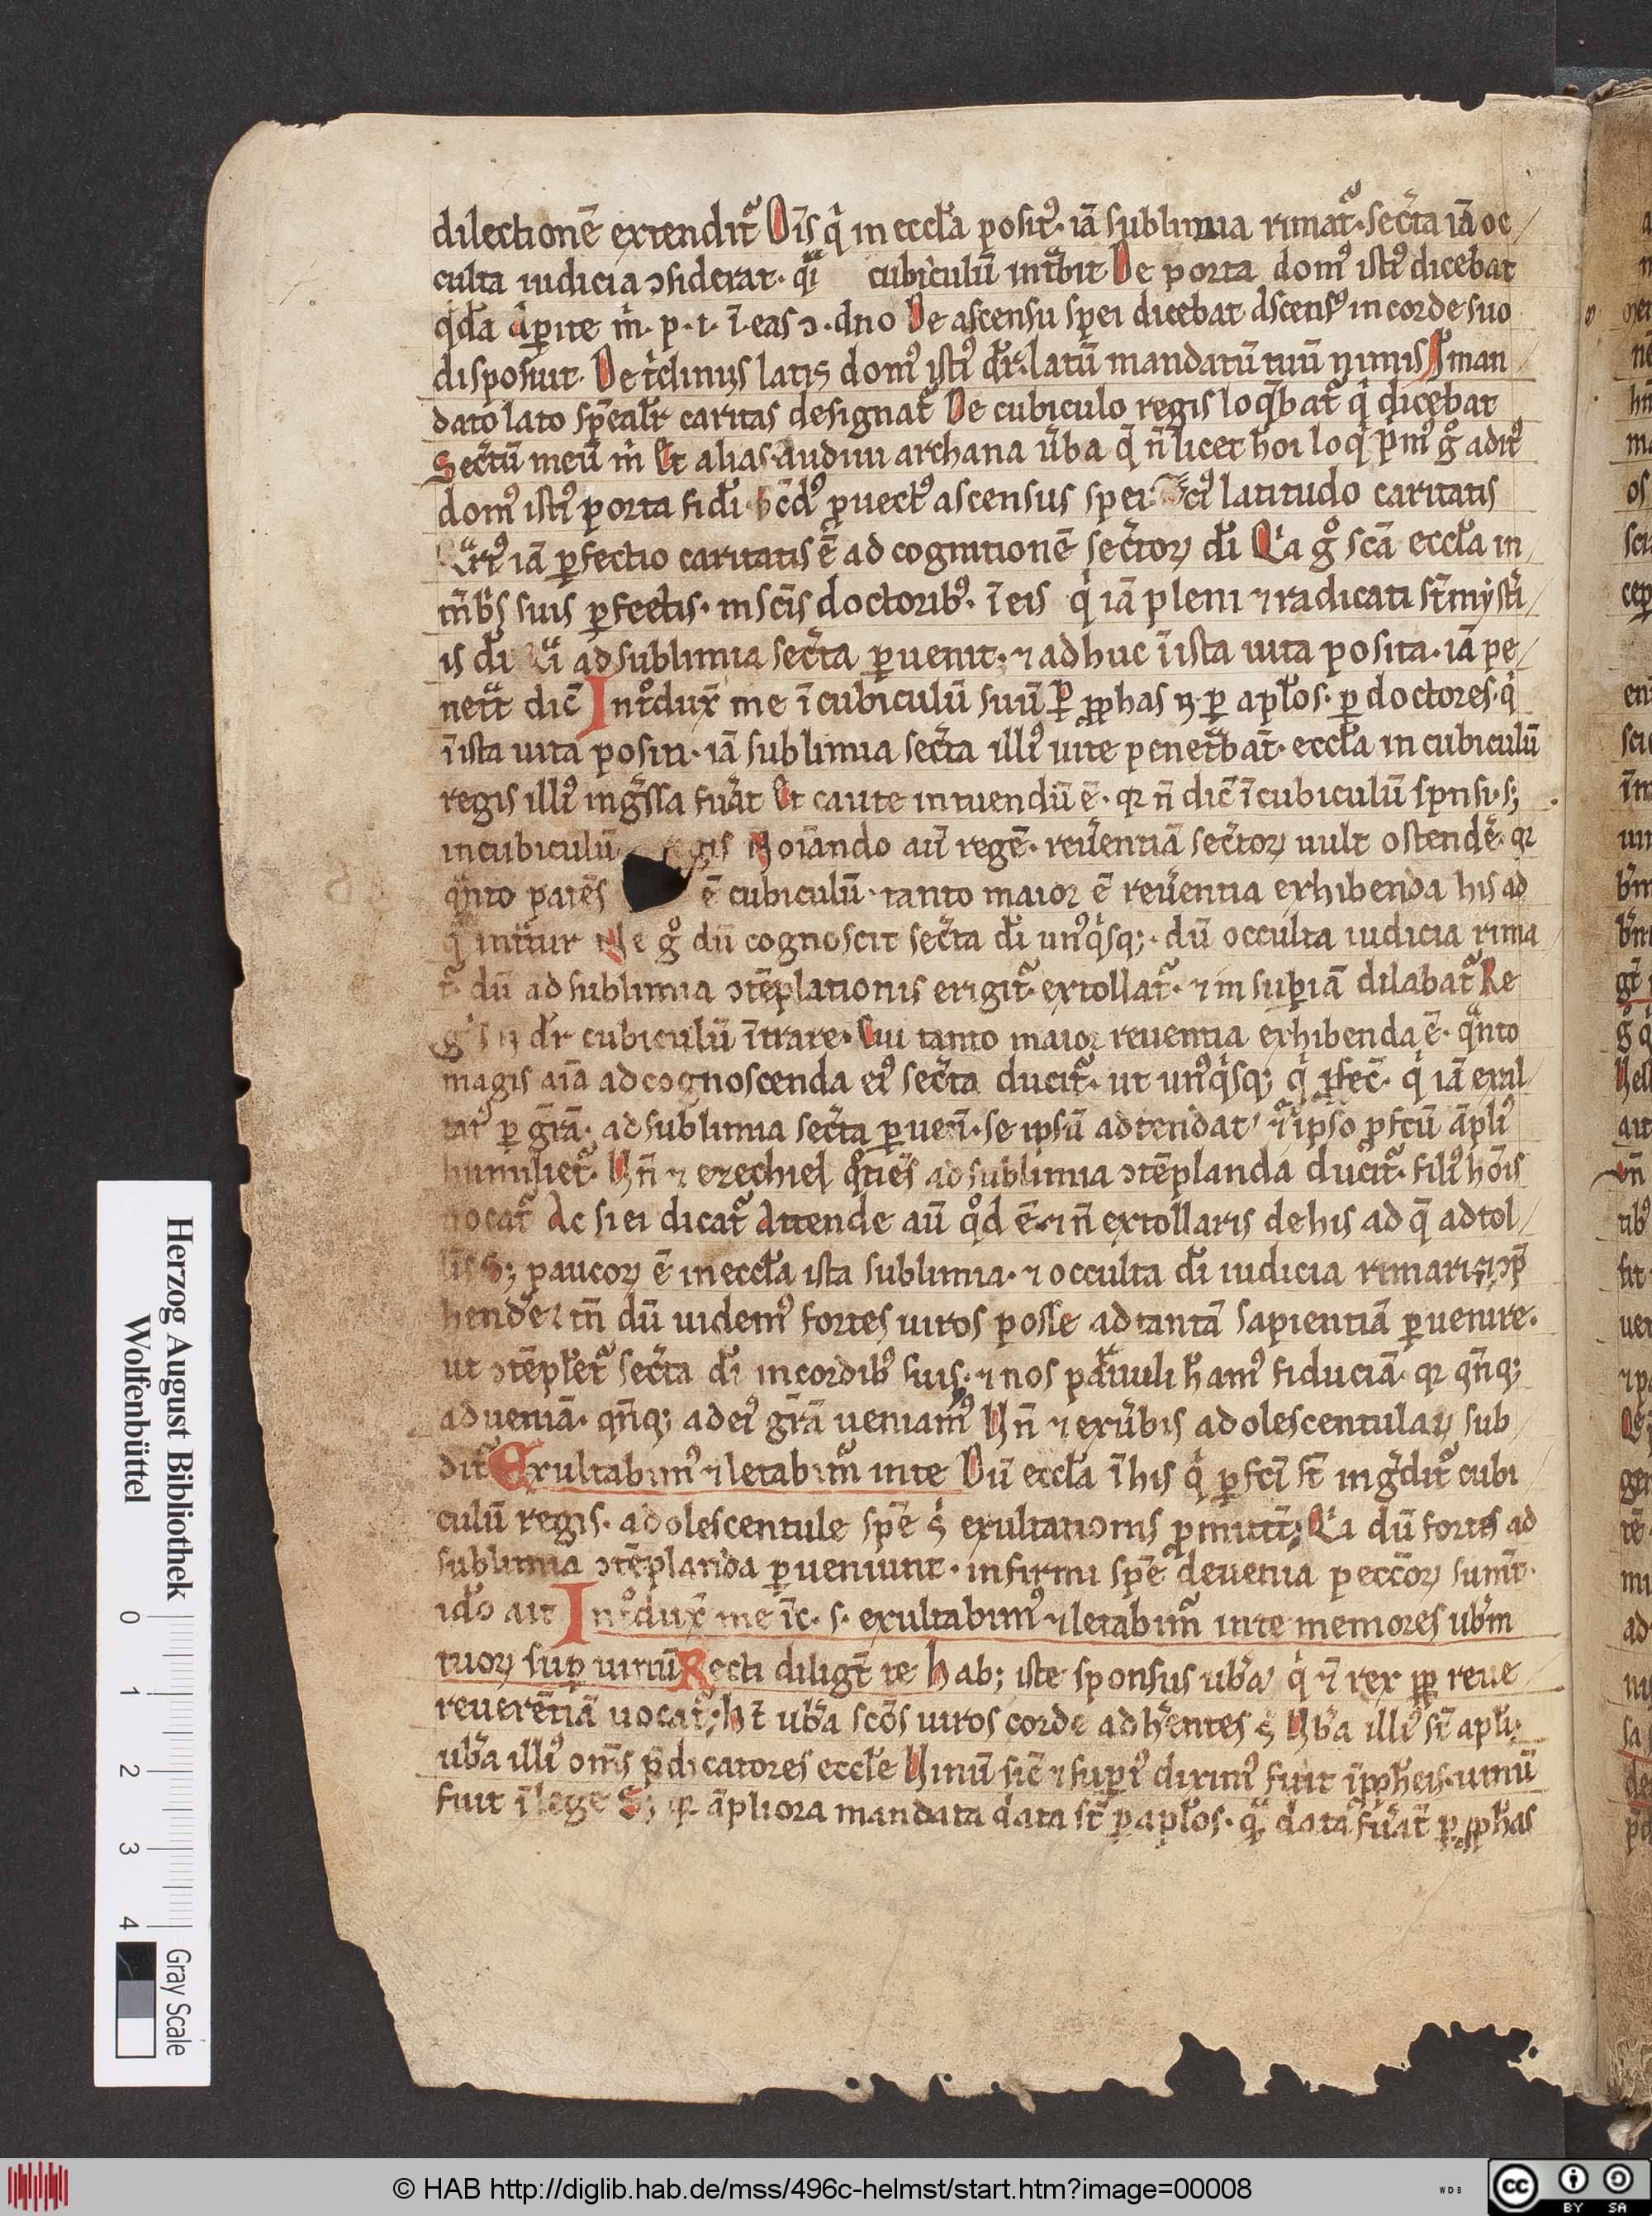 dilectionē extendit᷑ Oīs q̇ in eccl̄a posit᷒· iā sublimia rimat᷑· sec̄ta iā oc
culta iudicia ɔsiderat· q̄i cubiculū int̄bit De porta dom᷒ isti᷒ dicebat
q̇dā ap̱ite m̄· p· i· ī· eas ɔ· dno De ascensu spei dicebat Ascens᷒ in corde suo
disposuit· De t̄clinijs latis dom᷒ isti᷒ dr̄· latū mandatū tuū nimis In man
dato lato sp̄ealr̄ caritas designat᷑ De cubiculo regis loq̄bat᷑ q̇ dicebat
Secr̄tū meū m̄ Et alias· audiui archana ūba q̄ n̄ licet hoi loq̇ p̄m᷒ g̊ adit᷒
dom᷒ isti᷒ porta fidi· sc̄d᷒ ꝓuect᷒ ascensus spei· ci᷒ latitudo caritatis
iā p̱fectio caritatis ē ad cognitionē sec̄toꝝ dī Q̇a g̊ scā eccl̄a in
m̄b̄s suis p̱fectis· in scīs doctorib᷒· ī eis q̇ iā pleni ⁊ radicati st̄ mýst̄i
is dī ad sublimia sec̄ta p̱uenit· ⁊ adhuc ī ista uita posita· iā pe
net̄t dic̄ Int̊dux̄ me ī cubiculū suū P̱ ꝓphas n̄· p̱ apl̄os· p̱ doctores· q̇
ī ista uita positi· iā sublimia sec̄ta illi᷒ uite penet̄bāt· eccl̄a in cubiculū
regis illi᷒ inḡssa fūat Et caute intuendū ē· qꝛ n̄ dic̄ ī cubiculū sponsi· sꝫ
in cubiculū gis Noīando aūt regē· reūentiā sec̄toꝝ uult ostendē· qꝛ
q̄nto ē cubiculū· tanto maior ē reūentia exhibenda his ad
int̄tur Ne g̊ dū cognoscit sec̄ta dī un᷒q̇sqꝫ· dū occulta iudicia rima
t᷑· dū ad sublimia ɔtēplationis erigit᷑· extollat᷑· ⁊ in sup̱iā dilabat᷑ Re
gis n̄ dr̄ cubiculū ītrare· Cui tanto maior reuentia exhibenda ē· q̄nto
magis aīa ad cognoscenda ei᷒ sec̄ta ducit᷑· ut un᷒q̇sqꝫ q̇ ꝓfec̄· q̇ iā exal
tat᷑ p̱ gr̄ā· ad sublimia sec̄ta p̱uen̄· se ipsū adtendat ⁊ ī ipso ꝓfcū āpli᷒
humiliet᷑· Uñ ⁊ ezechiel q̊tiēs ad sublimia ɔtēplanda ducit᷑· fili᷒ hoīs
uocat᷑ Ac si ei dicat᷑ Attende aū q̊d ē· ⁊ n̄ extollaris de his ad q̄ adtol
Sꝫ paucoꝝ ē in eccl̄a ista sublimia· ⁊ occulta dī iudicia rimari· ⁊ ɔp̄
hendē· tn̄ dū uidem᷒ fortes uiros posse ad tantā sapientiā p̱uenire·
ut ɔtēplēt᷑ sec̄ta dī in cordib᷒ suis· ⁊ nos pāuuli h̄am᷒ fiduciā· qꝛ qn̄qꝫ
ad ueniā· qn̄qꝫ ad ei᷒ gr̄ā ueniam᷒ Uñ ⁊ ex ūbis adolescentulaꝝ sub
dit᷑ Exultabim᷒ ⁊ letabim̄ in te Dū eccl̄a ī his q̇ p̱fc̄i st̄ ing̊dit᷑ cubi
culū regis· adolescentule spē s̄ exultationis ꝓmitt̄t Q̇a dū fortes ad
sublimia ɔtēplanda p̱ueniunt· infirmi spē de uenia peccōꝝ sumt̄·
ido ait Int̊dux̄ me īc· s· exultabim᷒ ⁊ letabim̄ in te memores ub̄m
tuoꝝ sup̱ uinū Recti diligt̄ te Habꝫ iste sponsus ūba q̇ ⁊ rex ꝓp̱ reue
reuerētiā uocat᷑· ht̄ ūba scōs uiros corde adh̄entes s̄ Uba illi᷒ st̄ apl̄i·
ūba illi᷒ om̄s p̄dicatores eccl̄e Uinū sic̄ ⁊ sup̱i᷒ dixim᷒ fuit ī ꝓph̄eis· uinū
fuit ī lege Sꝫ qꝛ āpliora mandata data st̄ p̱ apl̄os· q̄ data fūat p̱ ꝓphas
Herzog August Bibliothek
Wolfenbüttel
0 1 2 3 4
Gray Scale
© HAB http://diglib.hab.de/mss/496c-helmst/start.htm?image=00008
WDB
cc BY SA